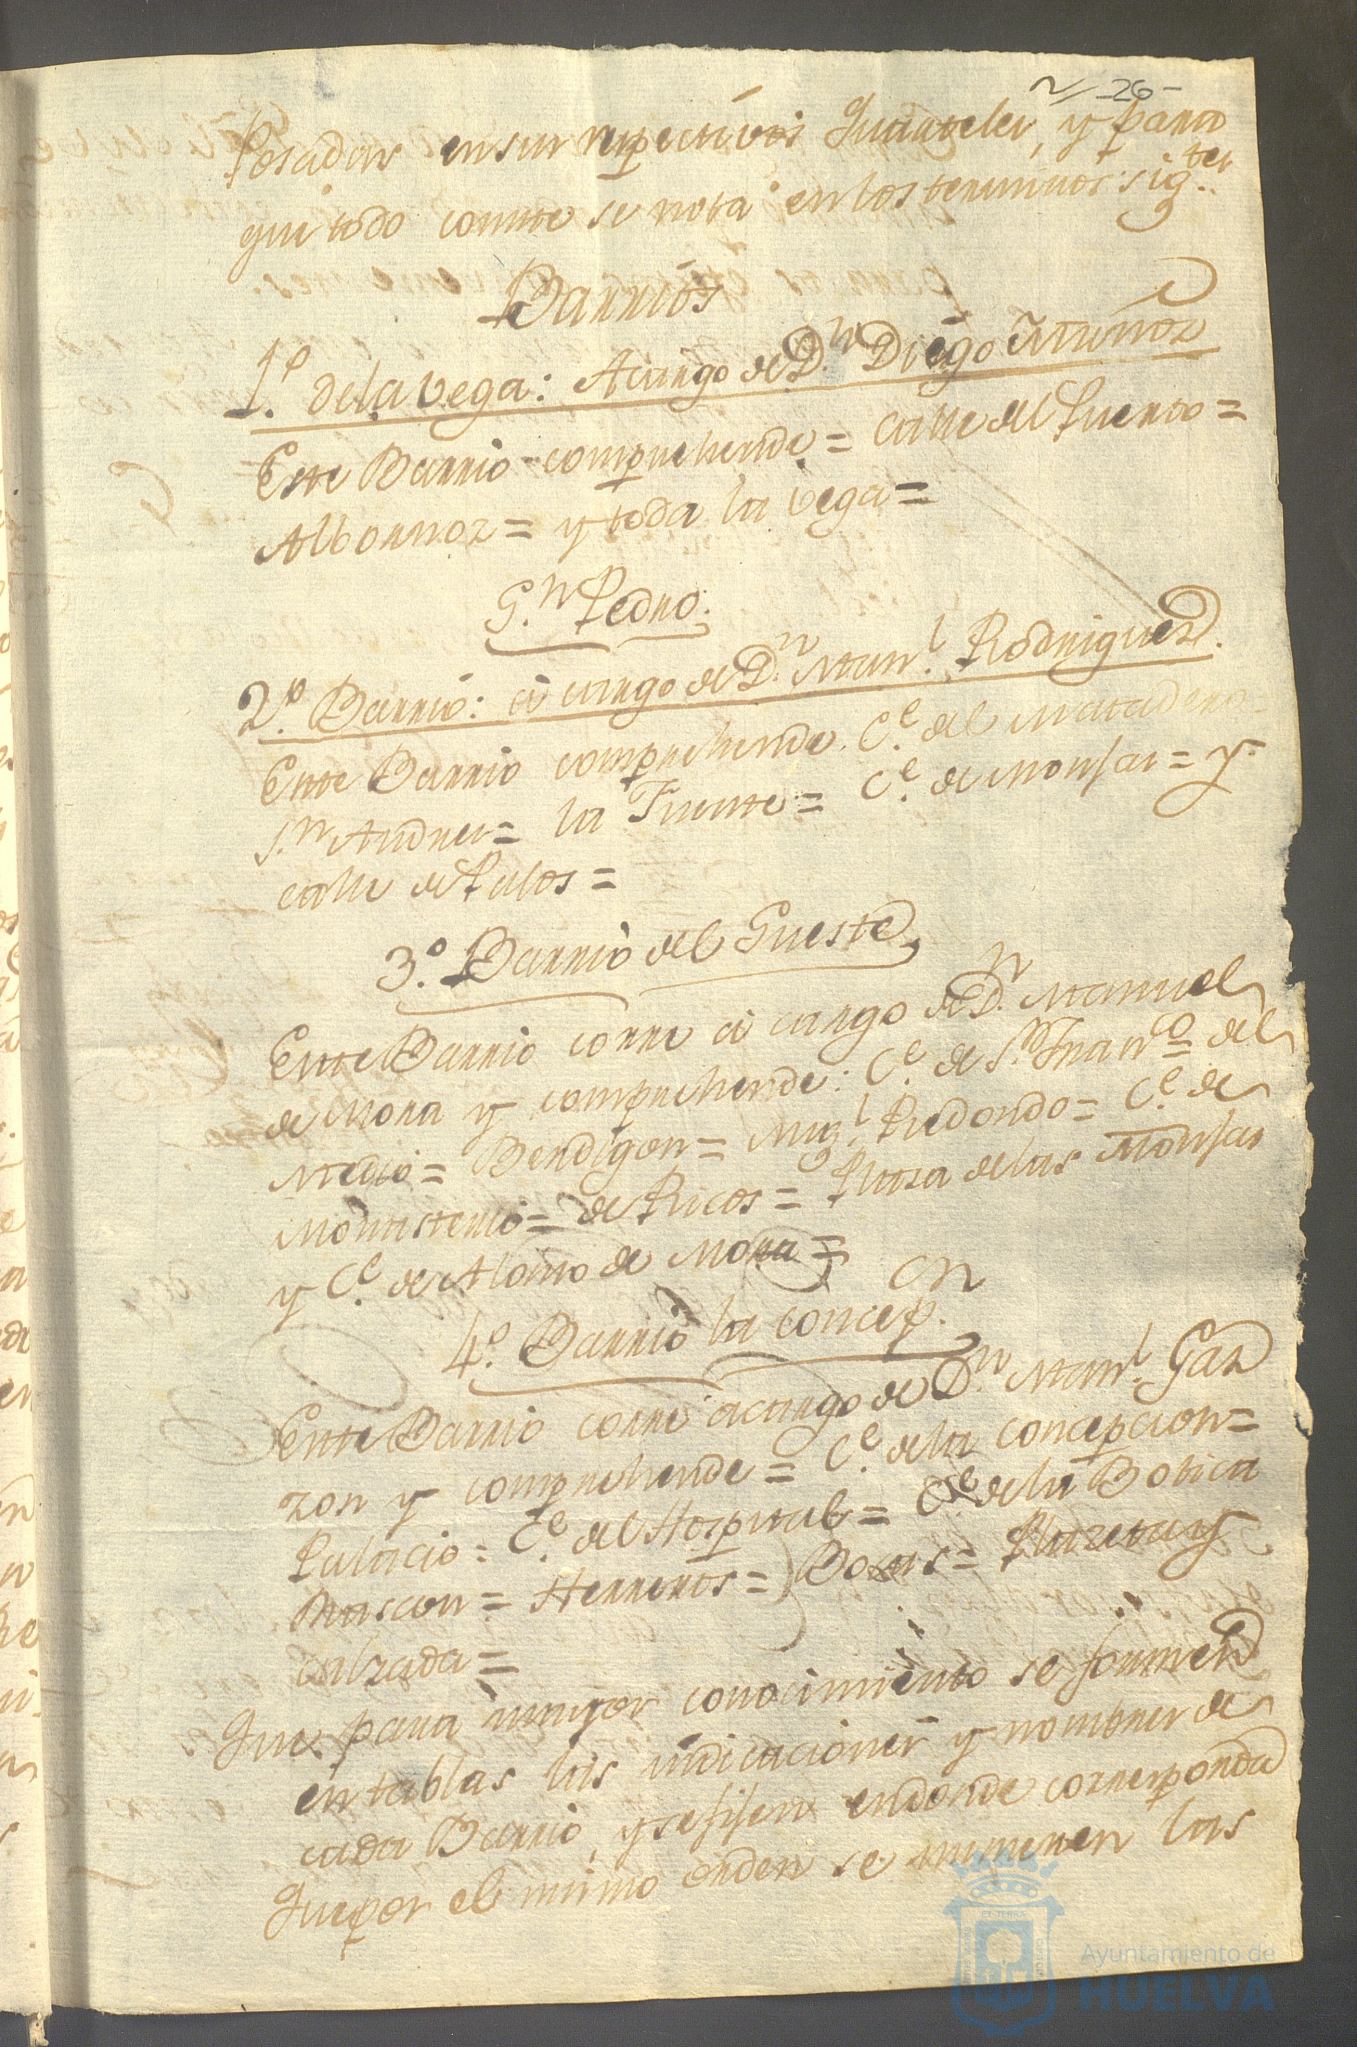 -26-
Posadas en sus respectivos Quarteles, y para
que todo conste se nota en los terminos sig.tes
Barrios
1.º de la vega: A cargo de D.n Diego Muñoz
Este Barrio comprehende = calle del Puerto =
Albornoz = y toda la vega =
S.n Pedro.
2.º Barrio: à cargo de D.n Man.l Rodriguez.
Este Barrio comprehende. C.e del Matadero =
S.n Andres = la Fuente = C.e de Monjas = y
calle de Palos =
3.º Barrio del Gueste
Este Barrio corre à cargo de D.n Manuel
de Mora y comprehende: C.e de S.n Fran.co del
Medio = Bendigon = Mig.l Redondo = C.e de
Monasterio = de Ricos = Plaza de las Monjas
y C.e de Alonso de Mora =
4.º Barrio la concep.cn
Este Barrio corre a cargo de D.n Man.l Gar
zon y comprehende = C.e de la concepcion =
Palacio = C.e del Hospital = C.e de la Botica
Rascon = Herreros = Bocas = Plazeta y
Calzada =
Que para mayor conocimiento se formen
en tablas las indicaciones y nombres de
cada Barrio, y se fijen en donde corresponda
Que por el mismo orden se numeren las
Ayuntamiento de
HUELVA